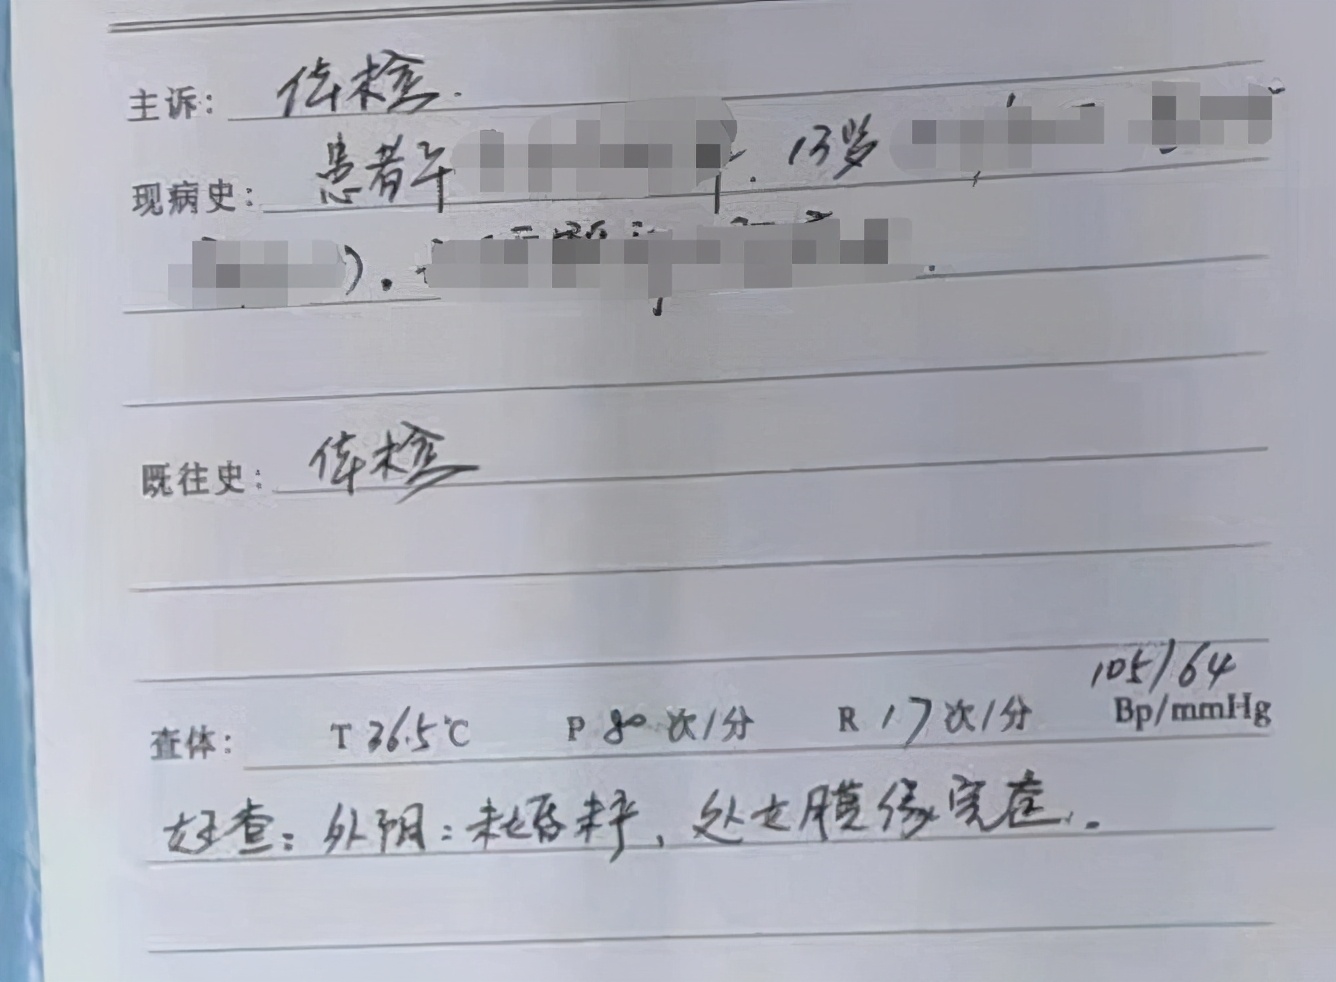 主诉：体检.
现病史：患者年 . 13岁
).
既往史：体检
105/64
查体： T 36.5℃ P 80次/分 R 17次/分 Bp/mmHg
妇查：外阴：未婚未孕，处女膜缘完整.